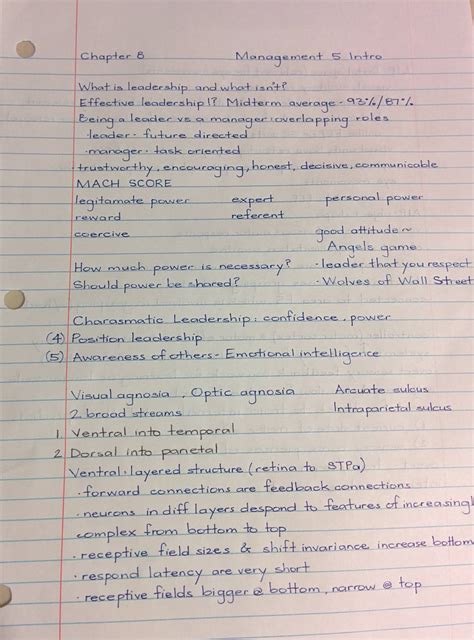 Chapter 8 Management 5 Intro
What is leadership and what isn't?
Effective leadership!? Midterm average - 93%/87%
Being a leader vs a manager: overlapping roles
· leader - future directed
· manager - task oriented
· trustworthy, encouraging, honest, decisive, communicable
MACH SCORE
legitamate power expert personal power
reward referent
coercive good attitude ~
Angels game
How much power is necessary? · leader that you respect
Should power be shared? · Wolves of Wall Street
Charasmatic Leadership: confidence, power
(4) Position leadership
(5) Awareness of others - Emotional intelligence
Visual agnosia, Optic agnosia Arcuate sulcus
2 broad streams Intraparietal sulcus
1. Ventral into temporal
2 Dorsal into parietal
Ventral: layered structure (retina to STPa)
· forward connections are feedback connections
· neurons in diff layers despond to features of increasingl
complex from bottom to top
· receptive field sizes & shift invariance increase bottom
· respond latency are very short
· receptive fields bigger @ bottom, narrow @ top